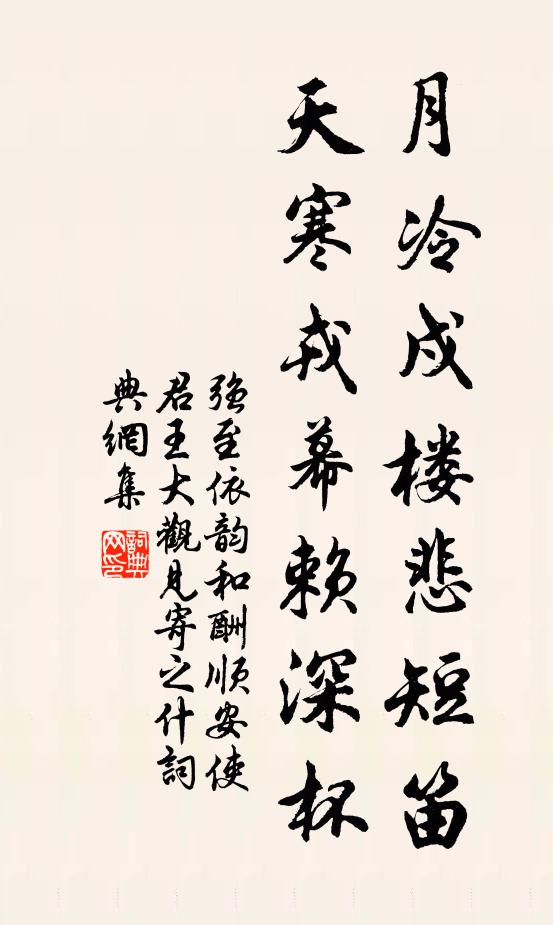 月冷戍楼悲短笛
天寒戎幕赖深杯
強至依韵和酬顺安使
君王大觀見寄之什詞
典網集
詞典网印